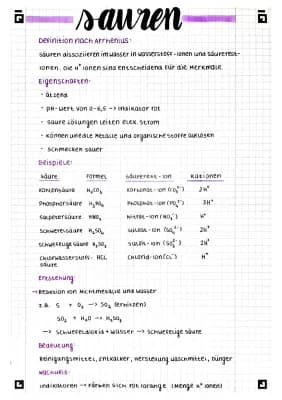 säuren
Definition nach Arrhenius:
säuren dissoziieren im wasser in wasserstoff-ionen und säurerest-
ionen. Die H⁺ ionen sind entscheidend für die Merkmale.
Eigenschaften:
- ätzend
- pH-wert von 0-6,5 -> indikator rot
- saure lösungen leiten elek. strom
- können unedle Metalle und organische stoffe auflösen
- schmecken sauer
Beispiele:
säure Formel säurerest-ion Kationen
Kohlensäure H₂CO₃ Karbonat-ion (CO₃²⁻) 2H⁺
Phosphorsäure H₃PO₄ Phosphat-ion (PO₄³⁻) 3H⁺
salpetersäure HNO₃ Nitrat-ion (NO₃⁻) H⁺
schwefelsäure H₂SO₄ sulfat-ion (SO₄²⁻) 2H⁺
schwefelige säure H₂SO₃ sulfit-ion (SO₃²⁻) 2H⁺
chlorwasserstoff- HCL chlorid-ion (Cl⁻) H⁺
säure
Entstehung:
→ Reaktion von Nichtmetalle und wasser
z.B. S + O₂ -> SO₂ (erhitzen)
SO₂ + H₂O -> H₂SO₃
-> schwefeldioxid + wasser -> schwefelige säure
Bedeutung:
Reinigungsmittel, entkalker, herstellung waschmittel, Dünger
Nachweis:
indikatoren -> färben sich rot/orange (Menge H⁺ ionen)